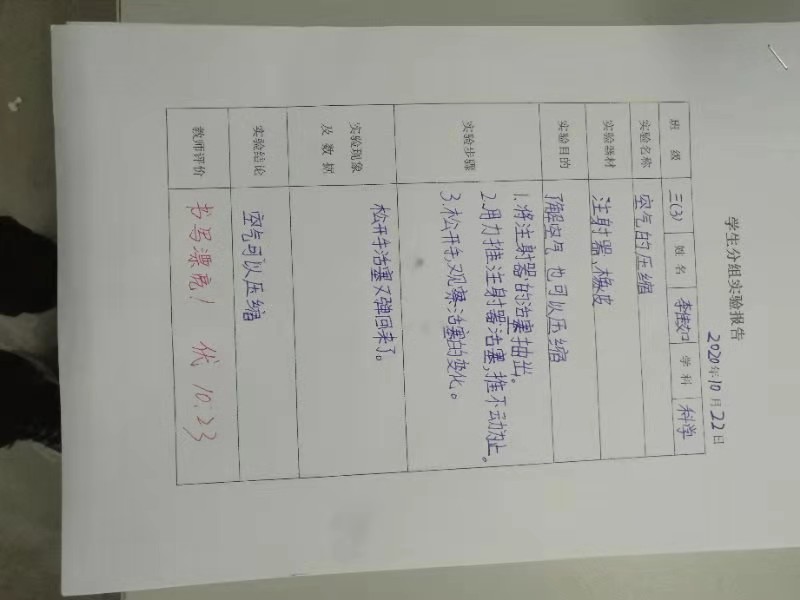 学生分组实验报告
2020年10月22日
班级 三(3) 姓名 李佳 学科 科学
实验名称 空气的压缩
实验器材 注射器,橡皮
实验目的 了解空气也可以压缩
实验步骤
1.将注射器的活塞抽出。
2.用力推注射器活塞,推不动为止。
3.松开手,观察活塞的变化。
实验现象
及数据
松开手活塞又弹回来了。
实验结论 空气可以压缩
教师评价 书写漂亮! 优 10.23